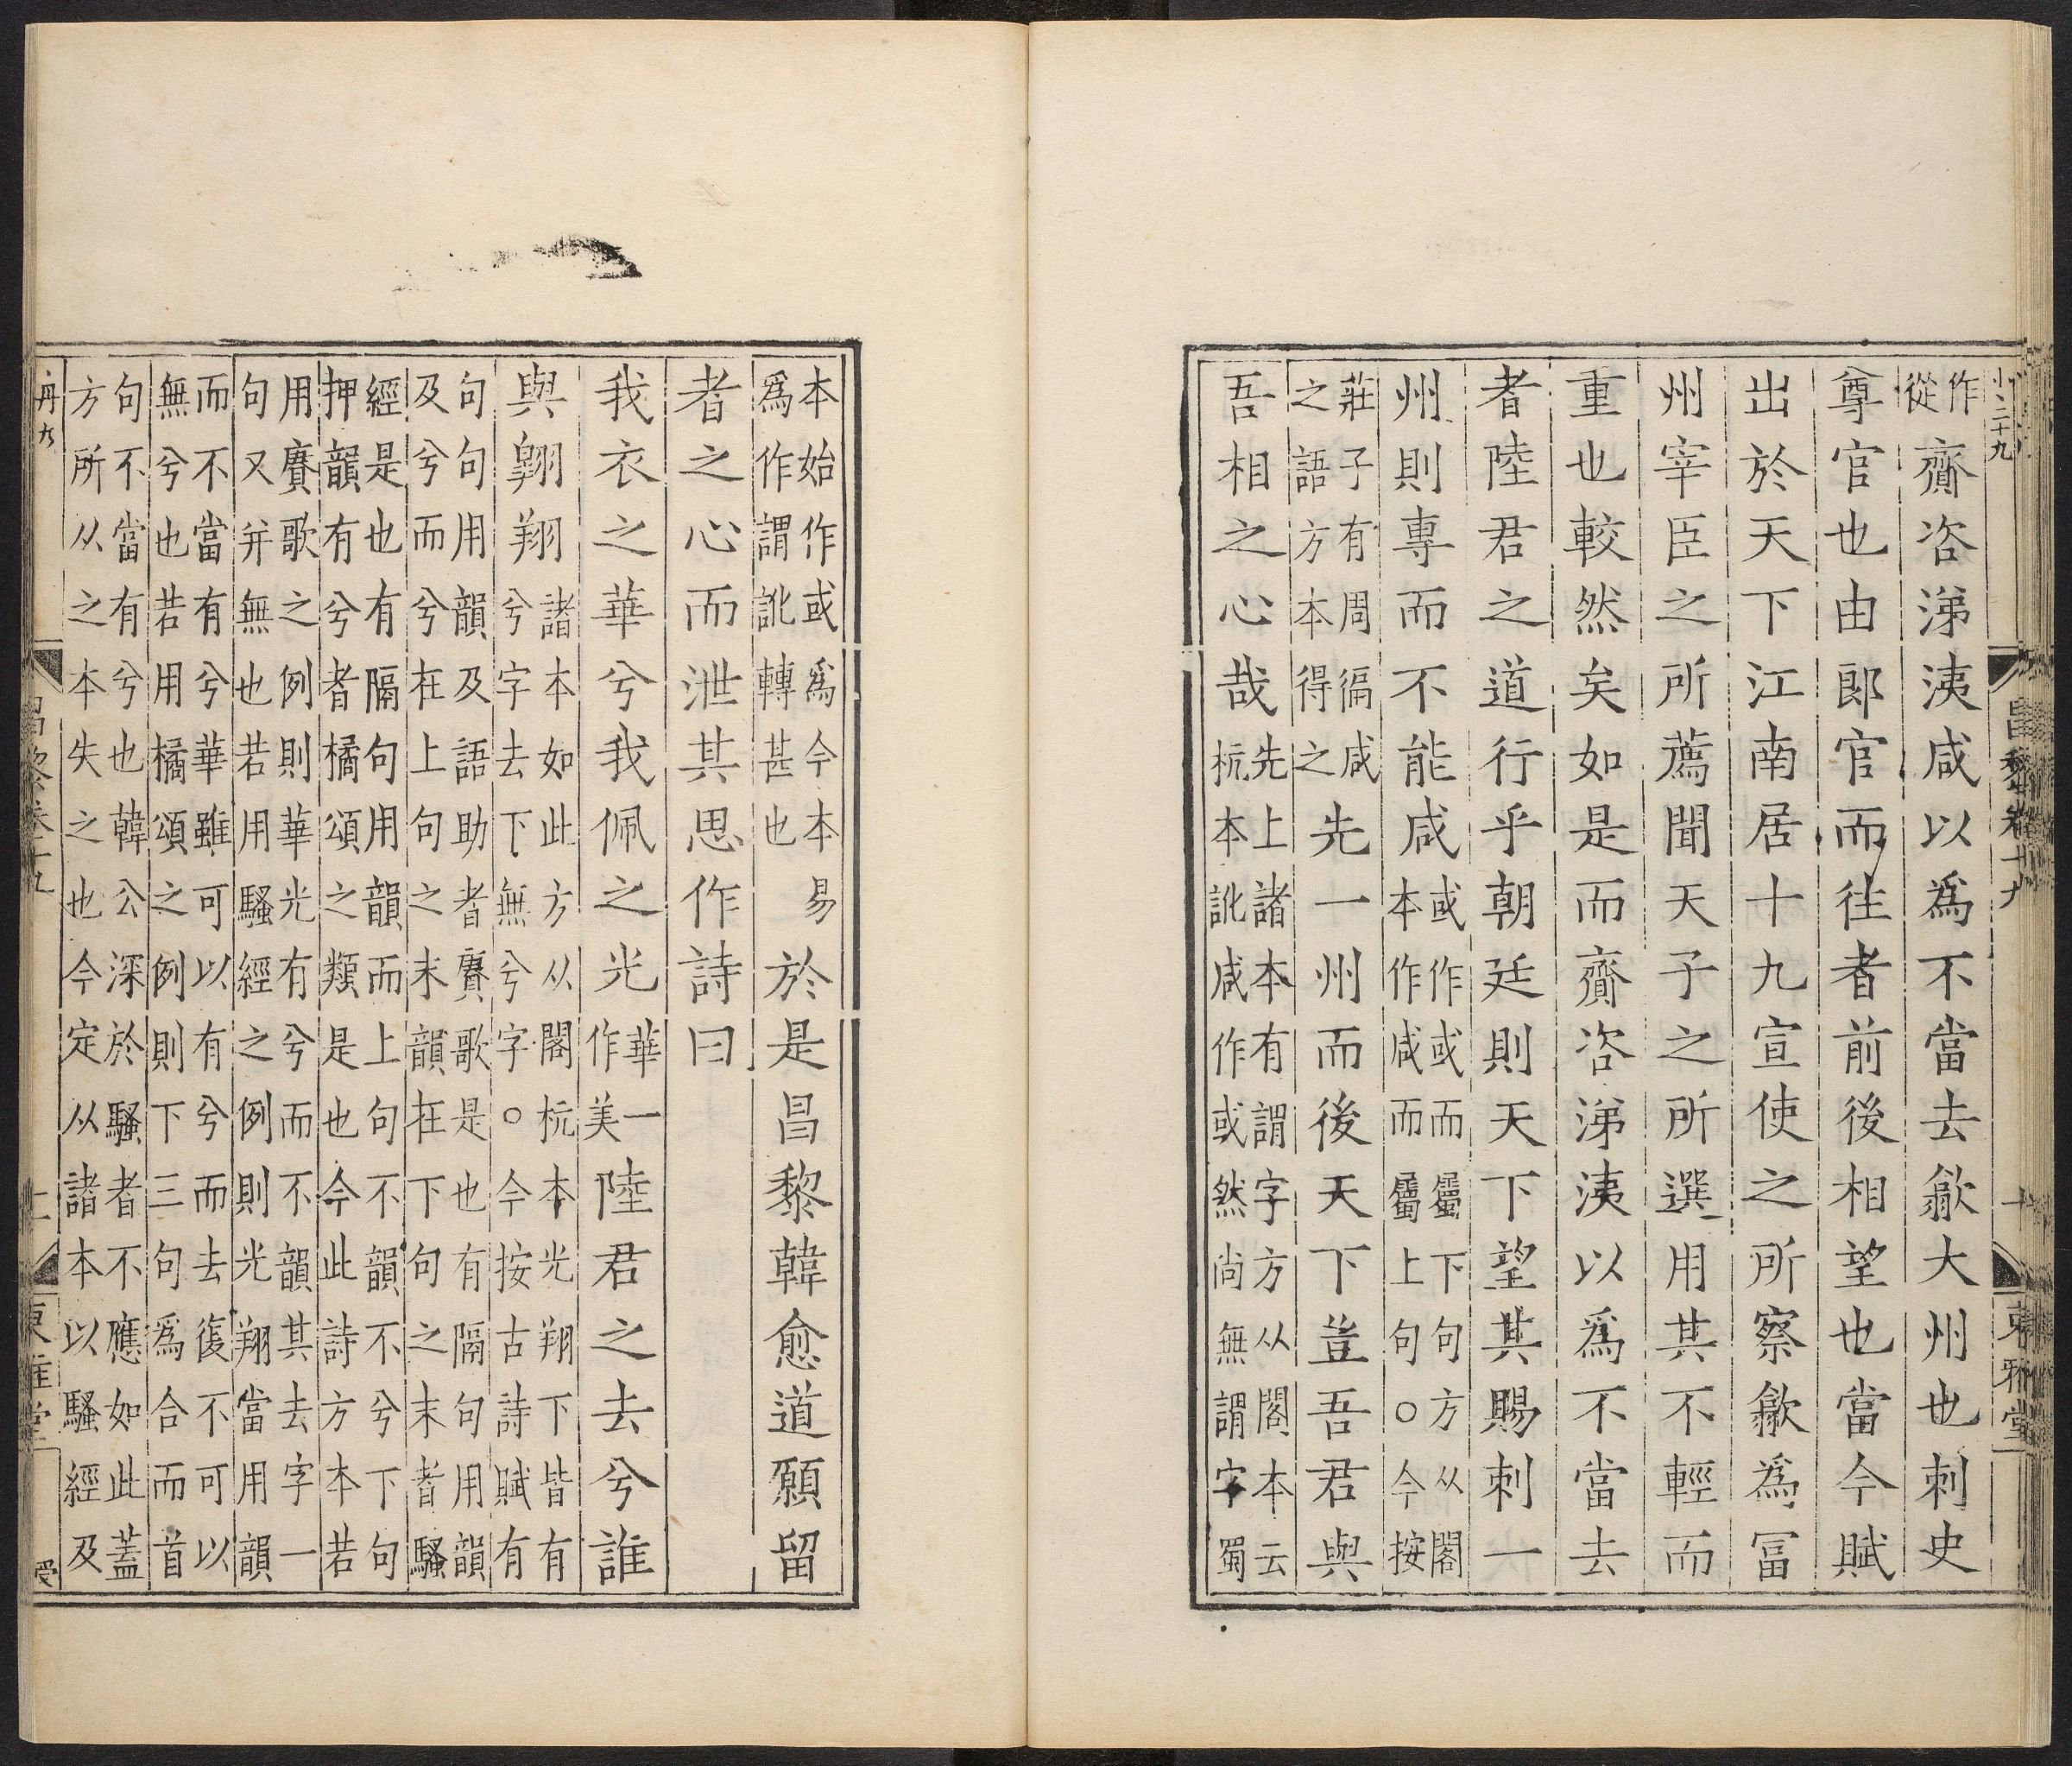 小二十九
昌黎卷十九 十 東雅堂
作從齎咨涕洟咸以爲不當去歙大州也刺史
尊官也由郎官而往者前後相望也當今賦
出於天下江南居十九宣使之所察歙爲富
州宰臣之所薦聞天子之所選用其不輕而
重也較然矣如是而齎咨涕洟以爲不當去
者陸君之道行乎朝廷則天下望其賜刺一
州則專而不能咸或作或而屬下句方从閣本作咸而屬上句○今按
莊子有周徧咸之語方本得之先一州而後天下豈吾君與
吾相之心哉先上諸本有謂字方从閣本云杭本訛咸作或然尚無謂字蜀
本始作或爲今本易爲作謂訛轉甚也於是昌黎韓愈道願留
者之心而泄其思作詩曰
我衣之華兮我佩之光華一作美陸君之去兮誰
與翺翔諸本如此方从閣杭本光翔下皆有兮字去下無兮字○今按古詩賦有
句句用韻及語助者賡歌是也有隔句用韻及兮而兮在上句之末韻在下句之末者騷
經是也有隔句用韻而上句不韻不兮下句押韻有兮者橘頌之類是也今此詩方本若
用賡歌之例則華光有兮而不韻其去字一句又并無也若用騷經之例則光翔當用韻
而不當有兮華雖可以有兮而去復不可以無兮也若用橘頌之例則下三句爲合而首
句不當有兮也韓公深於騷者不應如此蓋方所从之本失之也今定从諸本以騷經及
昌黎卷十九 十一 東雅堂